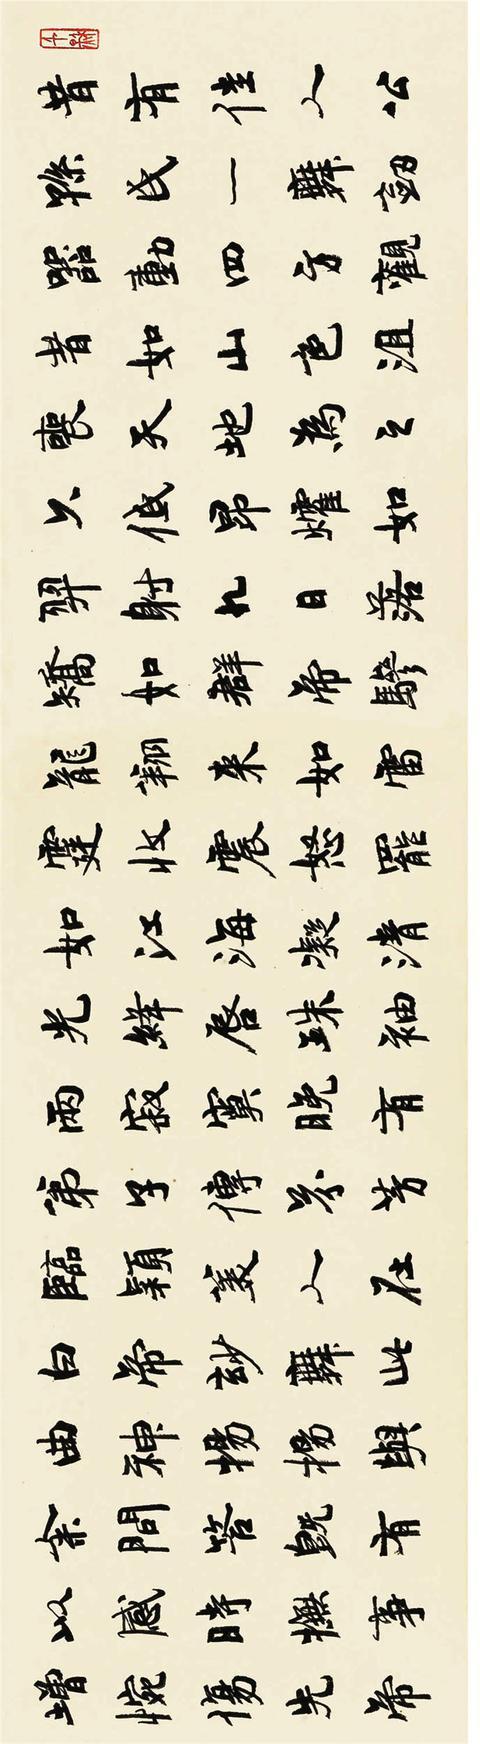 昔有佳人公
孫氏一舞劒
器動四方觀
者如山色沮
喪天地為之
久低昂燿如
羿射九日落
矯如群帝驂
龍翔來如雷
霆收震怒罷
如江海凝清
光絳唇珠袖
兩寂寞晚有
弟子傳芬芳
臨穎美人在
白帝玅舞此
曲神揚揚與
余問答既有
以感時撫事
增惋傷先帝